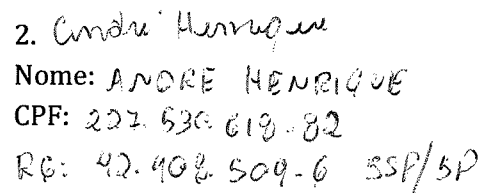 2. André Henrique
Nome: ANDRE HENRIQUE
CPF: 227.530.618-82
RG: 42.408.509-6 SSP/SP